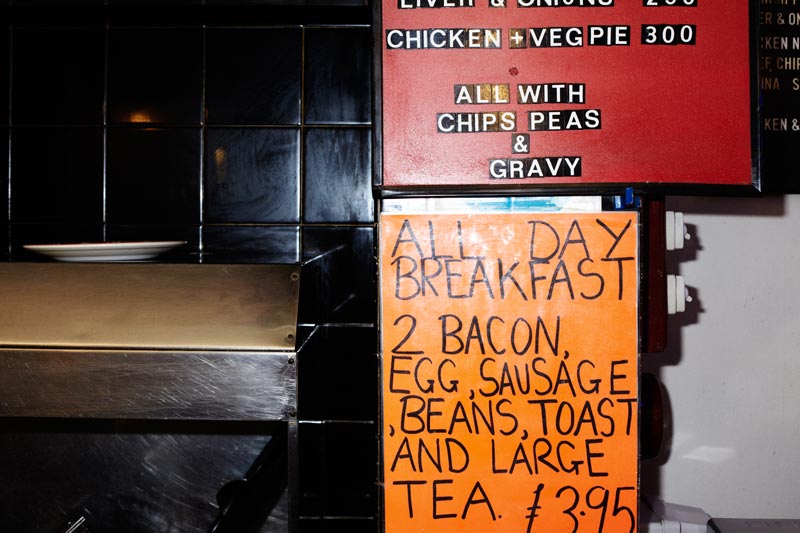 LIVER & ONIONS 200
CHICKEN + VEG PIE 300
ALL WITH
CHIPS PEAS
&
GRAVY
ALL DAY
BREAKFAST
2 BACON,
EGG, SAUSAGE
,BEANS, TOAST
AND LARGE
TEA. £3.95